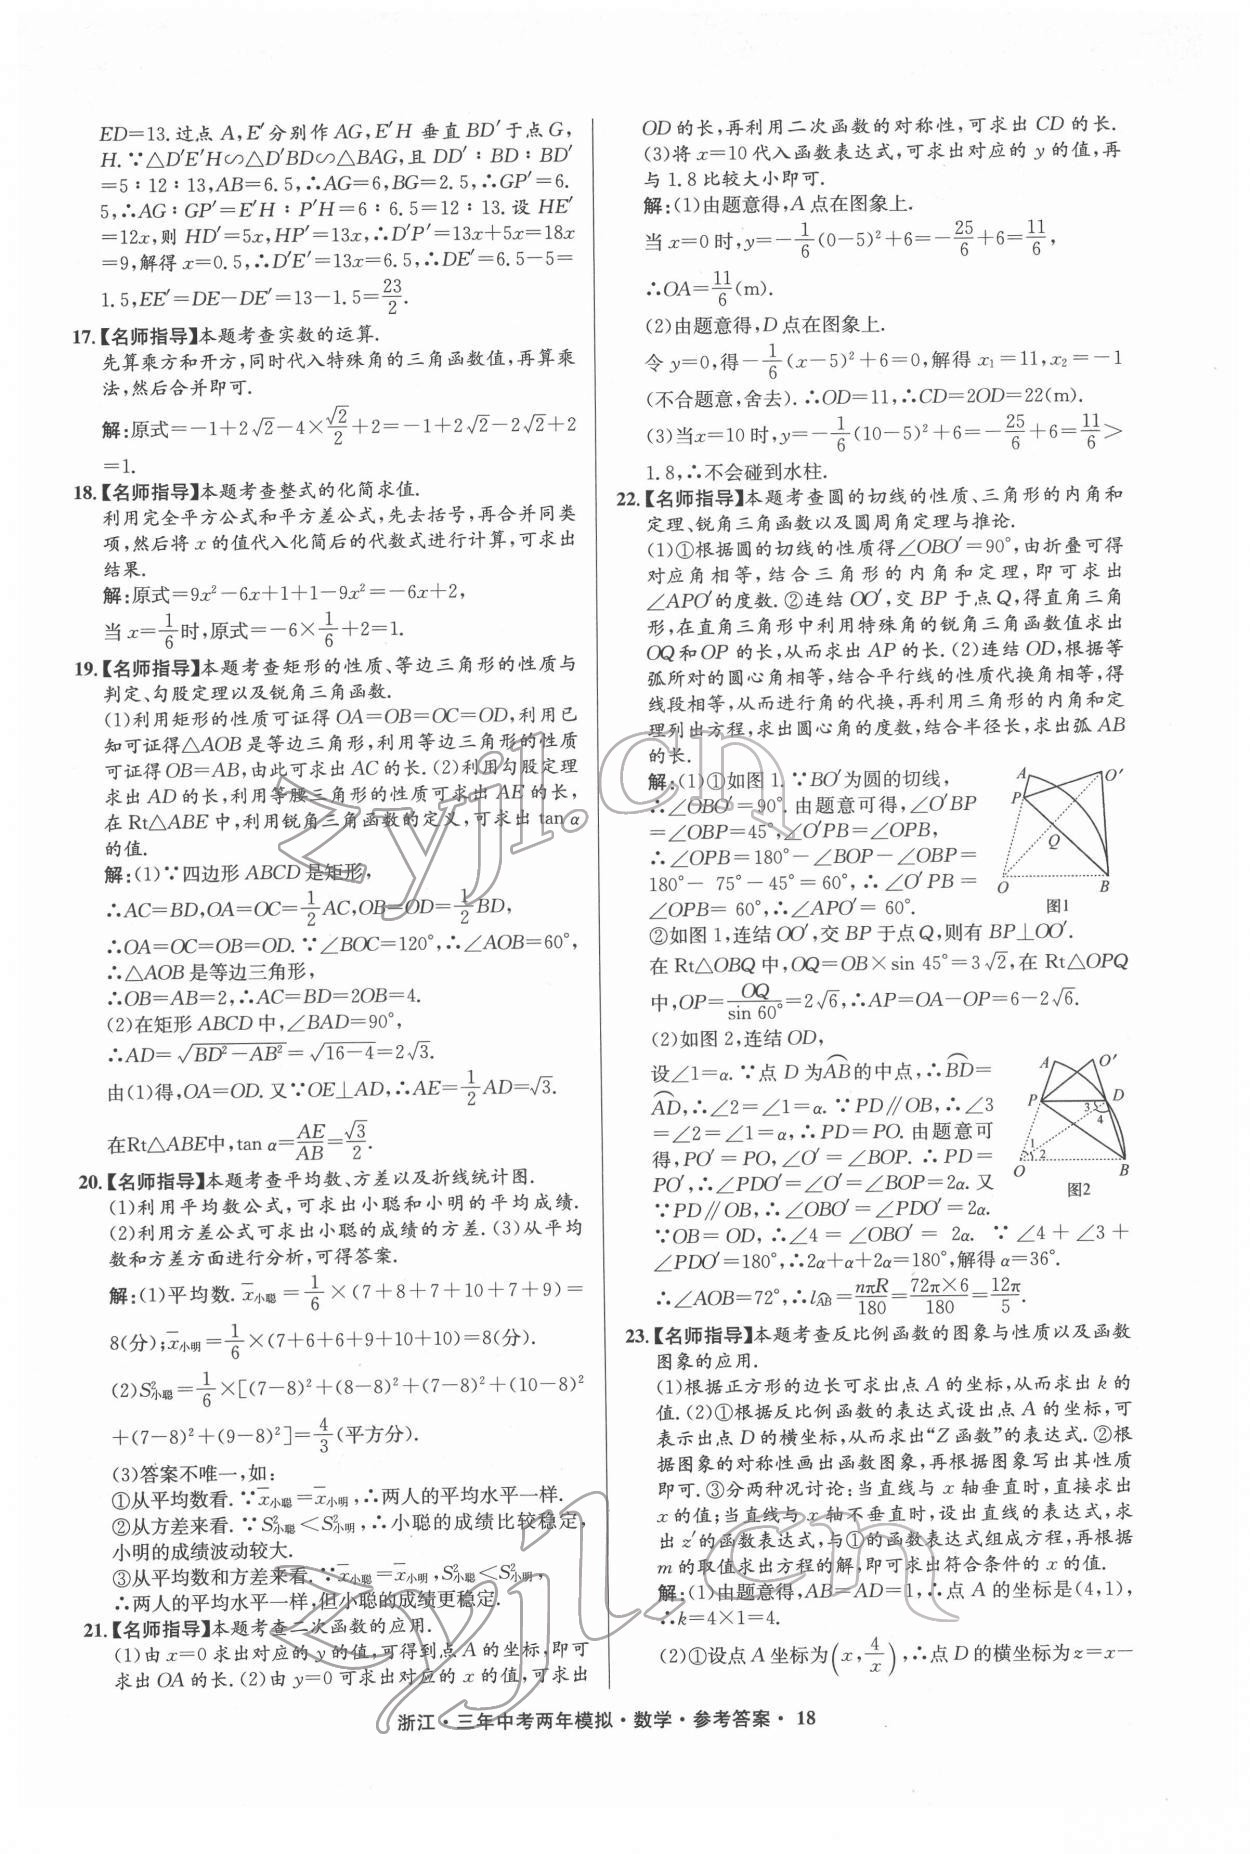 ED=13.过点 A,E′分别作 AG,E′H 垂直 BD′于点 G,
H.∵△D′E′H∽△D′BD∽△BAG,且 DD′∶BD∶BD′
=5∶12∶13,AB=6.5,∴AG=6,BG=2.5,∴GP′=6.
5,∴AG∶GP′=E′H∶P′H=6∶6.5=12∶13.设 HE′
=12x,则 HD′=5x,HP′=13x,∴D′P′=13x+5x=18x
=9,解得 x=0.5,∴D′E′=13x=6.5,∴DE′=6.5-5=
1.5,EE′=DE-DE′=13-1.5=23/2.
17.【名师指导】本题考查实数的运算.
先算乘方和开方,同时代入特殊角的三角函数值,再算乘
法,然后合并即可.
解:原式=-1+2√2-4×√2/2+2=-1+2√2-2√2+2
=1.
18.【名师指导】本题考查整式的化简求值.
利用完全平方公式和平方差公式,先去括号,再合并同类
项,然后将 x 的值代入化简后的代数式进行计算,可求出
结果.
解:原式=9x²-6x+1+1-9x²=-6x+2,
当 x=1/6时,原式=-6×1/6+2=1.
19.【名师指导】本题考查矩形的性质、等边三角形的性质与
判定、勾股定理以及锐角三角函数.
(1)利用矩形的性质可证得 OA=OB=OC=OD,利用已
知可证得△AOB 是等边三角形,利用等边三角形的性质
可证得 OB=AB,由此可求出 AC 的长.(2)利用勾股定理
求出 AD 的长,利用等腰三角形的性质可求出 AE 的长,
在 Rt△ABE 中,利用锐角三角函数的定义,可求出 tan α
的值.
解:(1)∵四边形 ABCD 是矩形,
∴AC=BD,OA=OC=1/2 AC,OB=OD=1/2 BD,
∴OA=OC=OB=OD.∵∠BOC=120°,∴∠AOB=60°,
∴△AOB 是等边三角形,
∴OB=AB=2,∴AC=BD=2OB=4.
(2)在矩形 ABCD 中,∠BAD=90°,
∴AD=√(BD²-AB²)=√(16-4)=2√3.
由(1)得,OA=OD.又∵OE⊥AD,∴AE=1/2 AD=√3.
在Rt△ABE中,tan α=AE/AB=√3/2.
20.【名师指导】本题考查平均数、方差以及折线统计图.
(1)利用平均数公式,可求出小聪和小明的平均成绩.
(2)利用方差公式可求出小聪的成绩的方差.(3)从平均
数和方差方面进行分析,可得答案.
解:(1)平均数.x̄小聪=1/6×(7+8+7+10+7+9)=
8(分);x̄小明=1/6×(7+6+6+9+10+10)=8(分).
(2)S²小聪=1/6×[(7-8)²+(8-8)²+(7-8)²+(10-8)²
+(7-8)²+(9-8)²]=4/3(平方分).
(3)答案不唯一,如:
①从平均数看.∵x̄小聪=x̄小明,∴两人的平均水平一样.
②从方差来看.∵S²小聪<S²小明,∴小聪的成绩比较稳定,
小明的成绩波动较大.
③从平均数和方差来看.∵x̄小聪=x̄小明,S²小聪<S²小明,
∴两人的平均水平一样,但小聪的成绩更稳定.
21.【名师指导】本题考查二次函数的应用.
(1)由 x=0 求出对应的 y 的值,可得到点 A 的坐标,即可
求出 OA 的长.(2)由 y=0 可求出对应的 x 的值,可求出
OD 的长,再利用二次函数的对称性,可求出 CD 的长.
(3)将 x=10 代入函数表达式,可求出对应的 y 的值,再
与 1.8 比较大小即可.
解:(1)由题意得,A 点在图象上.
当 x=0 时,y=-1/6(0-5)²+6=-25/6+6=11/6,
∴OA=11/6(m).
(2)由题意得,D 点在图象上.
令 y=0,得-1/6(x-5)²+6=0,解得 x₁=11,x₂=-1
(不合题意,舍去).∴OD=11,∴CD=2OD=22(m).
(3)当x=10 时,y=-1/6(10-5)²+6=-25/6+6=11/6>
1.8,∴不会碰到水柱.
22.【名师指导】本题考查圆的切线的性质、三角形的内角和
定理、锐角三角函数以及圆周角定理与推论.
(1)①根据圆的切线的性质得∠OBO′=90°,由折叠可得
对应角相等,结合三角形的内角和定理,即可求出
∠APO′的度数.②连结 OO′,交 BP 于点 Q,得直角三角
形,在直角三角形中利用特殊角的锐角三角函数值求出
OQ 和 OP 的长,从而求出 AP 的长.(2)连结 OD,根据等
弧所对的圆心角相等,结合平行线的性质代换角相等,得
线段相等,从而进行角的代换,再利用三角形的内角和定
理列出方程,求出圆心角的度数,结合半径长,求出弧 AB
的长.
解:(1)①如图 1.∵BO′为圆的切线,
∴∠OBO′=90°.由题意可得,∠O′BP
=∠OBP=45°,∠O′PB=∠OPB,
∴∠OPB=180°-∠BOP-∠OBP=
180°-75°-45°=60°,∴∠O′PB=
∠OPB=60°,∴∠APO′=60°.
A O′ P Q O B
图1
②如图 1,连结 OO′,交 BP 于点 Q,则有 BP⊥OO′.
在 Rt△OBQ 中,OQ=OB×sin 45°=3√2,在 Rt△OPQ
中,OP=OQ/sin 60°=2√6,∴AP=OA-OP=6-2√6.
(2)如图 2,连结 OD,
设∠1=α.∵点 D 为⌒AB的中点,∴⌒BD=
⌒AD,∴∠2=∠1=α.∵PD∥OB,∴∠3
=∠2=∠1=α,∴PD=PO.由题意可
得,PO′=PO,∠O′=∠BOP.∴PD=
PO′,∴∠PDO′=∠O′=∠BOP=2α.又
∵PD∥OB,∴∠OBO′=∠PDO′=2α.
A O′ P D 3 4 1 2 O B
图2
∵OB=OD,∴∠4=∠OBO′=2α.∵∠4+∠3+
∠PDO′=180°,∴2α+α+2α=180°,解得 α=36°.
∴∠AOB=72°,∴l⌒AB=nπR/180=72π×6/180=12π/5.
23.【名师指导】本题考查反比例函数的图象与性质以及函数
图象的应用.
(1)根据正方形的边长可求出点 A 的坐标,从而求出 k 的
值.(2)①根据反比例函数的表达式设出点 A 的坐标,可
表示出点 D 的横坐标,从而求出“Z 函数”的表达式.②根
据图象的对称性画出函数图象,再根据图象写出其性质
即可.③分两种况讨论:当直线与 x 轴垂直时,直接求出
x 的值;当直线与 x 轴不垂直时,设出直线的表达式,求
出 z′的函数表达式,与①的函数表达式组成方程,再根据
m 的取值求出方程的解,即可求出符合条件的 x 的值.
解:(1)由题意得,AB=AD=1,∴点 A 的坐标是(4,1),
∴k=4×1=4.
(2)①设点 A 坐标为(x,4/x),∴点 D 的横坐标为 z=x-
浙江·三年中考两年模拟·数学·参考答案·18
zyjl.cn
zyjl.cn